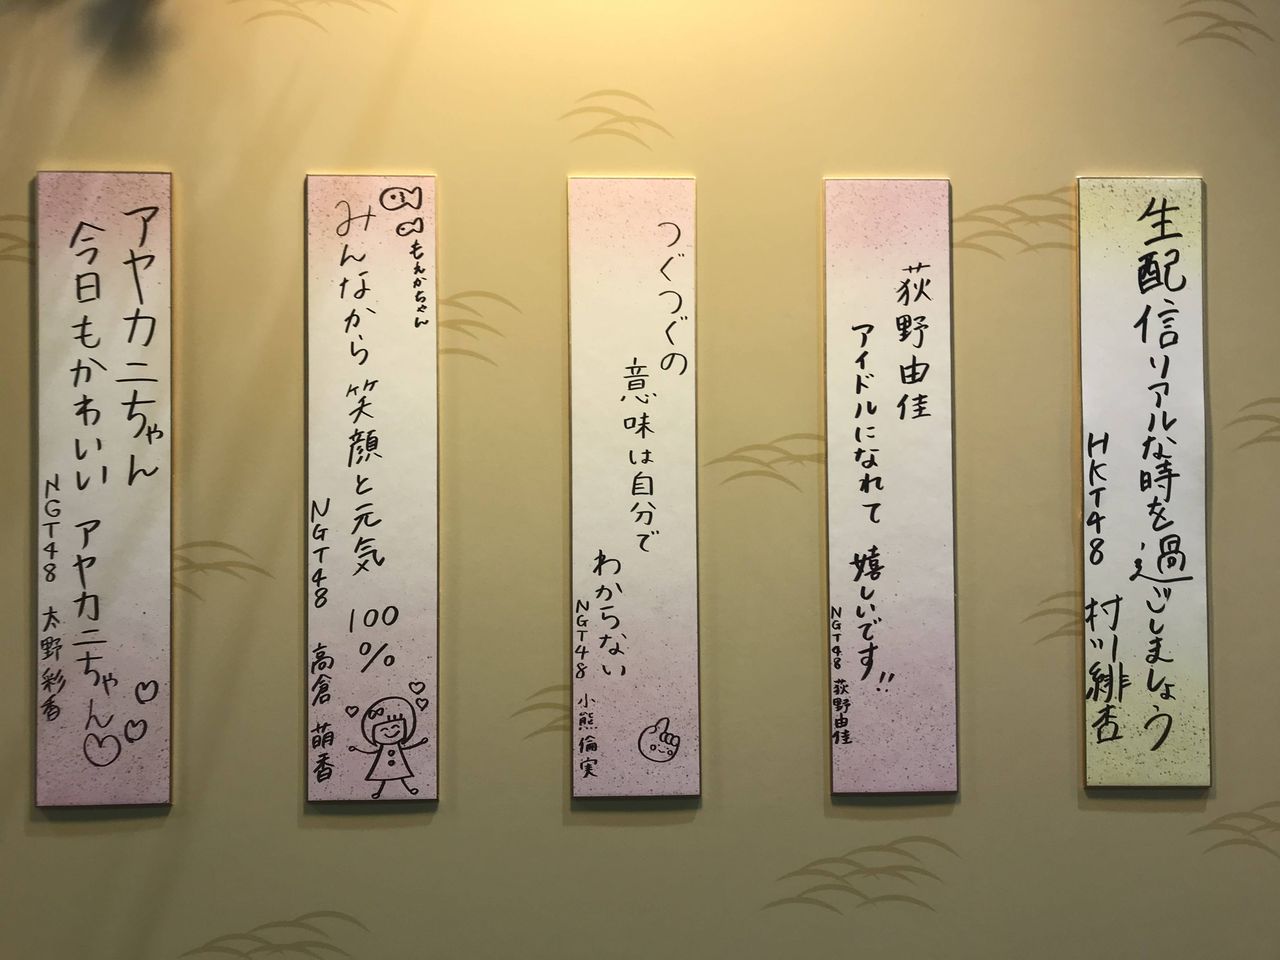 生配信リアルな時を過ごしましょう
HKT48 村川緋杏
荻野由佳
アイドルになれて 嬉しいです!!
NGT48 荻野由佳
つぐつぐの
意味は自分で
わからない
NGT48 小熊倫実
もえかちゃん
みんなから 笑顔と元気 100%
NGT48 高倉 萌香
アヤカニちゃん
今日もかわいい アヤカニちゃん
NGT48 太野彩香